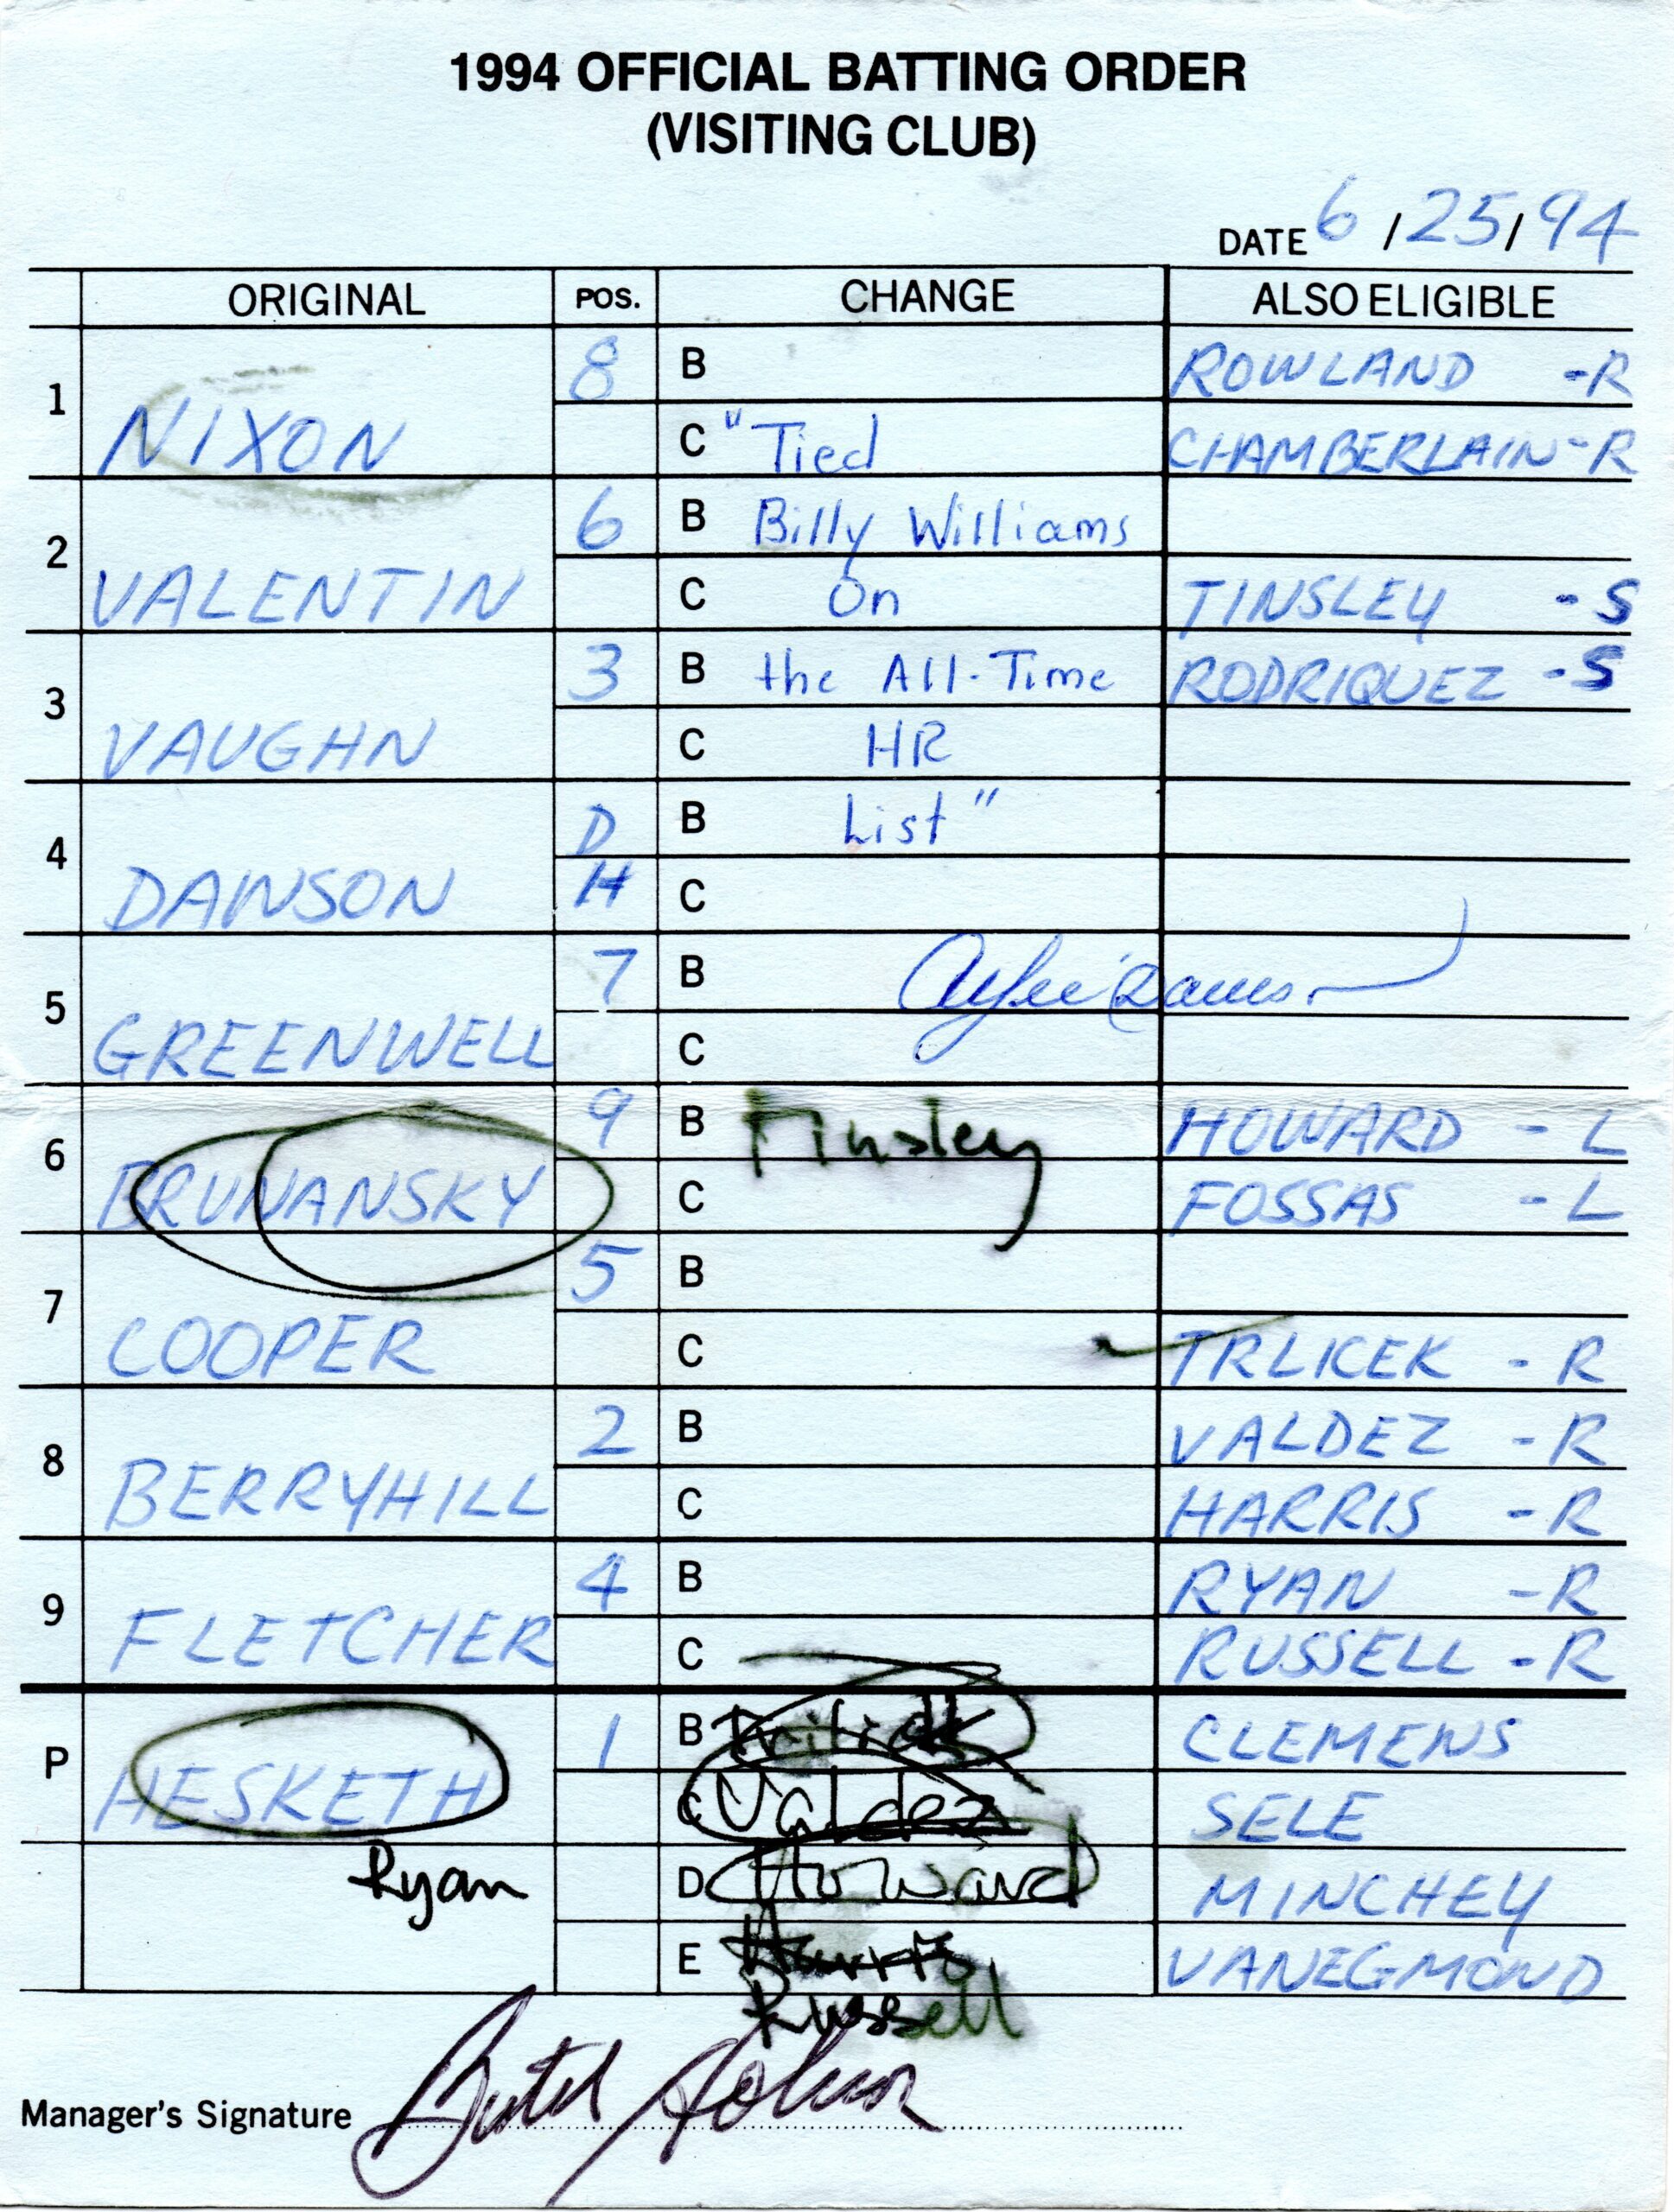 1994 OFFICIAL BATTING ORDER
(VISITING CLUB)
DATE 6/25/94
ORIGINAL POS. CHANGE ALSO ELIGIBLE
1 NIXON 8 B ROWLAND -R
C "Tied CHAMBERLAIN-R
2 VALENTIN 6 B Billy Williams
C On TINSLEY -S
3 VAUGHN 3 B the All-Time RODRIQUEZ -S
C HR
4 DAWSON DH B List"
C
5 GREENWELL 7 B
C
6 BRUNANSKY 9 B Tinsley HOWARD - L
C FOSSAS - L
7 COOPER 5 B
C TRLICEK - R
8 BERRYHILL 2 B VALDEZ - R
C HARRIS - R
9 FLETCHER 4 B RYAN -R
C RUSSELL - R
P HESKETH 1 B CLEMENS
C Valdez SELE
Ryan D Howard MINCHEY
E Harris VANEGMOND
Russell
Manager's Signature